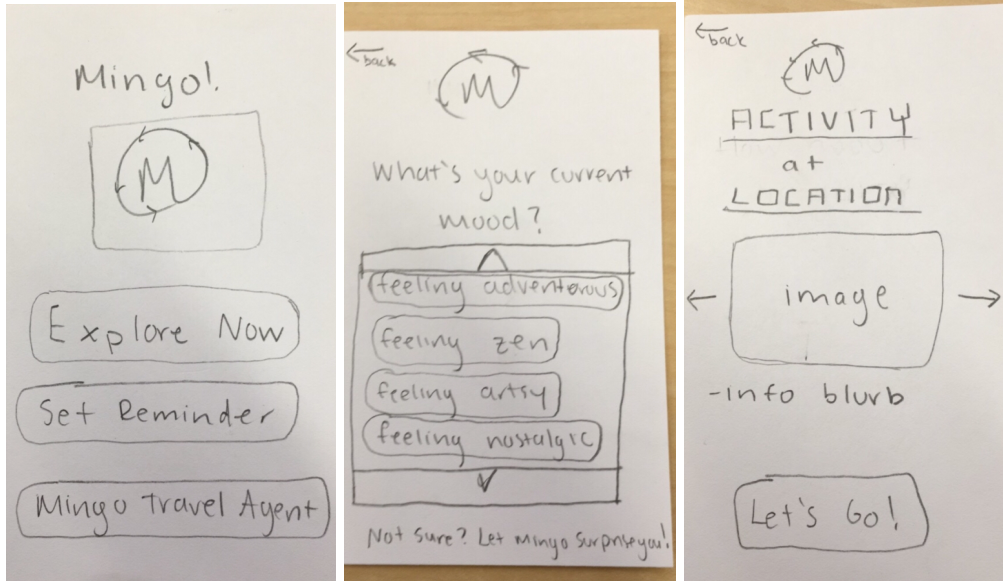 Mingo!
M
Explore Now
Set Reminder
Mingo Travel Agent
back
M
What's your current
mood?
feeling adventorous
feeling zen
feeling artsy
feeling nostalgic
Not sure? Let Mingo surprise you!
back
M
ACTIVITY
at
LOCATION
image
-info blurb
Let's Go!